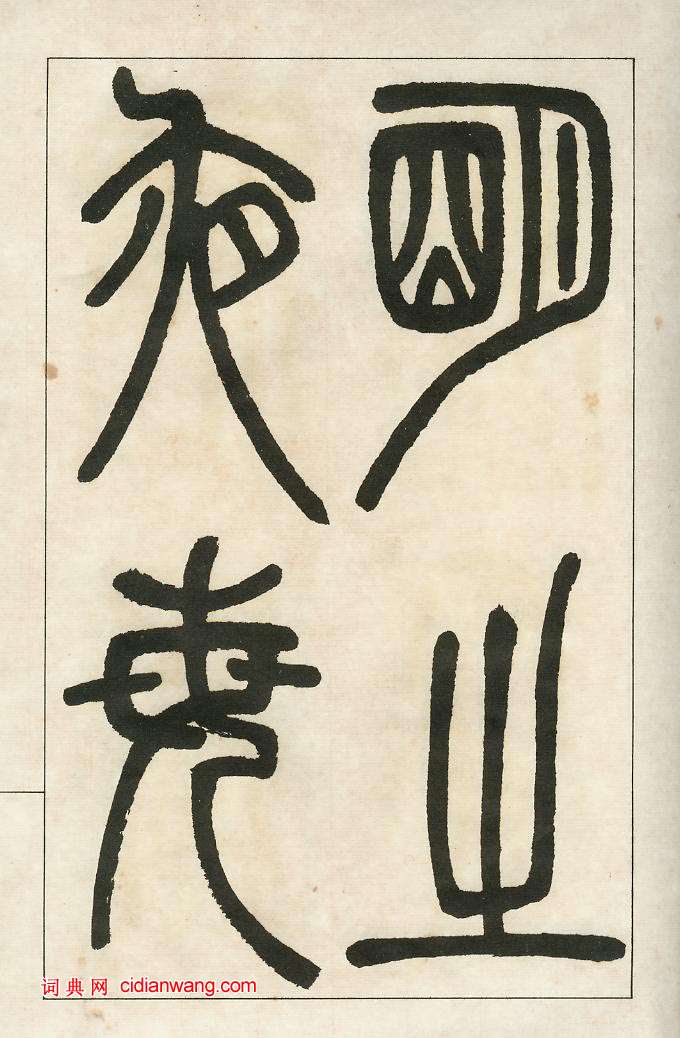 明之
夜每
词典网 cidianwang.com